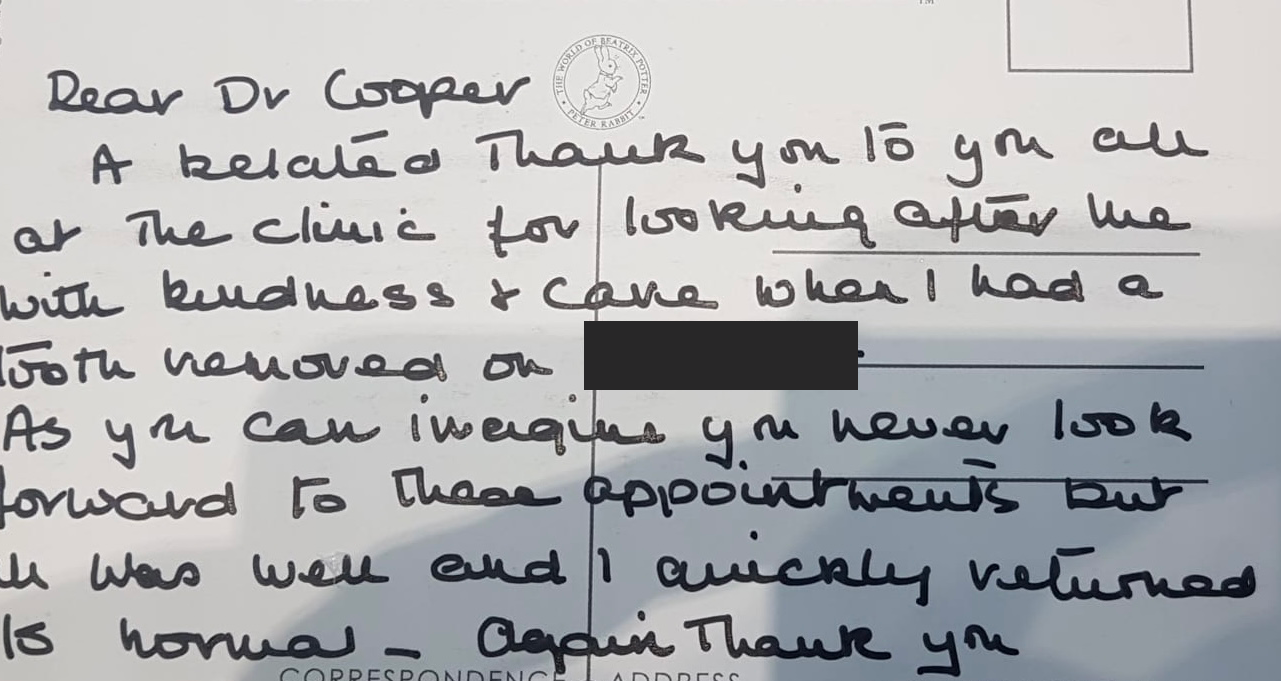 TM
THE WORLD OF BEATRIX POTTER
PETER RABBIT
Dear Dr Cooper
A belated Thank you to you all
at The clinic for looking after me
with kindness & care when I had a
tooth removed on
As you can imagine you never look
forward to these appointments but
all was well and I quickly returned
to normal - Again Thank you
CORRESPONDENCE ADDRESS